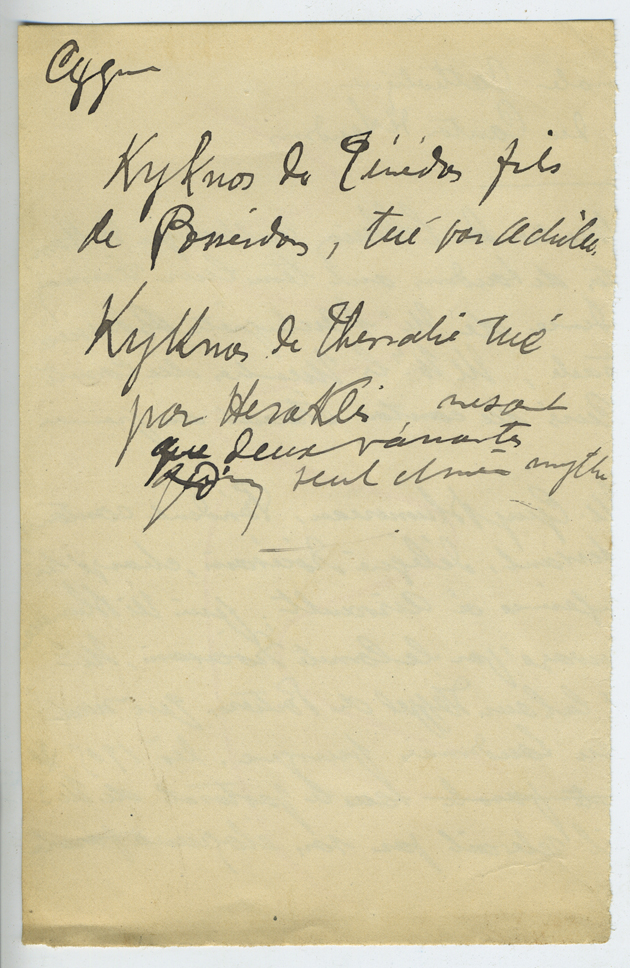 Cygne
Kyknos de Ténédos fils
de Posséidon, tué par Achille.
Kyknos de Thessalie tué
par Heraklès ne sont
que deux variantes
d'un seul et même mythe